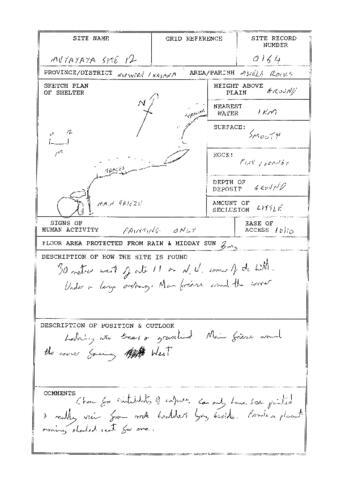 SITE NAME
GRID REFERENCE
SITE RECORD NUMBER
SITE 12
0164
PROVINCE/DISTRICT
AREA/PARISH
ROCKS
SKETCH PLAN OF SHELTER
N
TRACES
TRACES
MAIN FRIEZE
HEIGHT ABOVE PLAIN GROUND
NEAREST WATER 1KM
SURFACE: SMOOTH
ROCK: FINE GRAINED
DEPTH OF DEPOSIT GROUND
AMOUNT OF SECLUSION LITTLE
SIGNS OF HUMAN ACTIVITY PAINTING ONLY
EASE OF ACCESS 10/10
FLOOR AREA PROTECTED FROM RAIN & MIDDAY SUN
DESCRIPTION OF HOW THE SITE IS FOUND
30 metres west of site 11 on N.W. corner of the hill.
Under a large overhang. Main frieze round the corner
DESCRIPTION OF POSITION & OUTLOOK
Looking into trees & grassland Main frieze round
the corner facing West
COMMENTS
Chosen for suitability of surface. Can only have been painted
& really seen from rock boulders lying beside. Provides a pleasant
morning shaded seat for one.